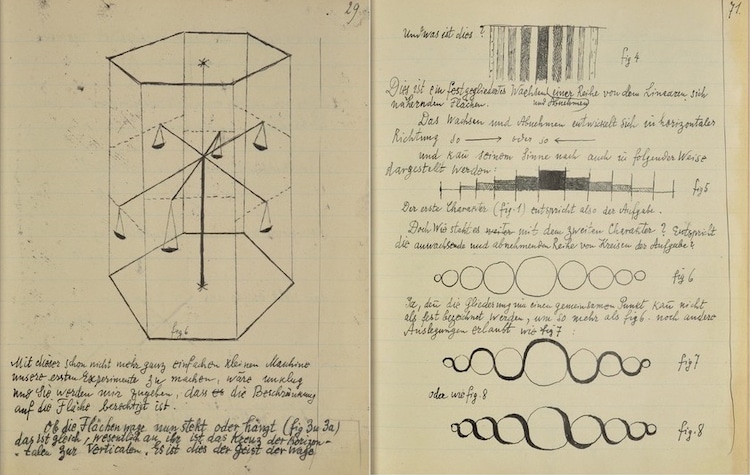 29
fig 6
Mit dieser schon nicht mehr ganz einfachen kleinen Maschine
unsere ersten Experimente zu machen, wäre unklug
und Sie werden mir zugeben, dass die Beschränkung
auf die Fläche berechtigt ist.
Ob die Flächenwage nun steht oder hängt (fig 3 u 3a)
das ist gleich, wesentlich an ihr ist das Kreuz der Horizon-
talen zur Verticalen. Es ist dies der Geist der Wage
71.
Und was ist dies?
fig 4
Dies ist ein festgegliedertes Wachsen einer Reihe von dem Linearen sich
und Abnehmen
nähernden Flächen.
Das Wachsen und Abnehmen entwickelt sich in horizontaler
Richtung so → oder so ←
und kan seinem Sinne nach auch in folgender Weise
dargestellt werden:
fig 5
Der erste Charakter (fig. 1) entspricht also der Aufgabe.
Doch wie steht es weiter mit dem zweiten Charakter? Entspricht
die anwachsende und abnehmenden Reihe von Kreisen der Aufgabe?
fig 6
Ja, den die Gliederung um einen gemeinsamen Punkt kan nicht
als fest bezeichnet werden, um so mehr als fig 6. noch andere
Auslegungen erlaubt wie fig 7:
fig 7
oder wie fig. 8
fig. 8